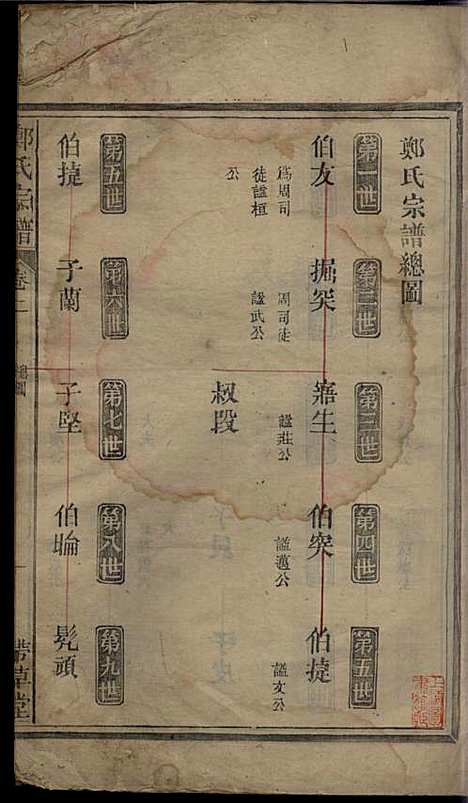 鄭氏宗譜總圖
第一世
伯友
爲周司
徒諡桓
公
第二世
掘突
周司徒
諡武公
第三世
寤生
諡莊公
叔段
第四世
伯突
諡厲公
第五世
伯捷
諡文公
第五世
伯㨗
第六世
子蘭
第七世
子堅
第八世
伯睔
第九世
髡頑
鄭氏宗譜
卷二
總圖
一
帶草堂